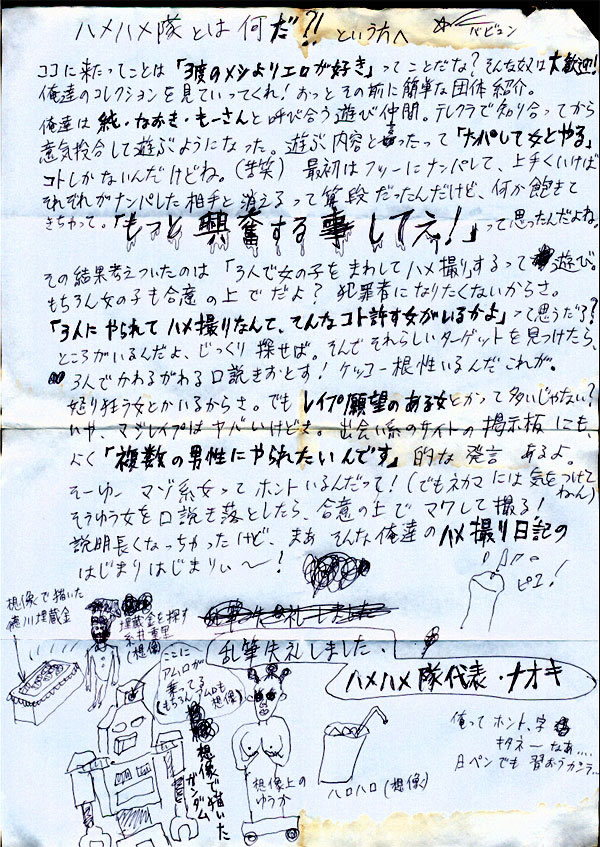 ハメハメ隊とは何だ?! という方へ
バビュン
ココに来たってことは「3度のメシよりエロが好き」ってことだな?そんな奴は大歓迎!
俺達のコレクションを見ていってくれ!おっとその前に簡単な団体紹介。
俺達は純・なおき・もーさんと呼び合う遊び仲間。テレクラで知り合ってから
意気投合して遊ぶようになった。遊ぶ内容と言ったって「ナンパして女とやる」
コトしかないんだけどね。(苦笑) 最初はフツーにナンパして、上手くいけば
それぞれがナンパした相手と消えるって算段だったんだけど、何か飽きて
きちゃって。「もっと興奮する事してえ!」って思ったんだよね。
その結果考えついたのは「3人で女の子をまわしてハメ撮り」するって遊び。
もちろん女の子も合意の上でだよ?犯罪者になりたくないからさ。
「3人にやられてハメ撮りなんて、そんなコト許す女がいるかよ」って思うだろ?
ところがいるんだよ、じっくり探せば。そんでそれらしいターゲットを見つけたら、
3人でかわるがわる口説きおとす!ケッコー根性いるんだこれが。
怒り狂う女とかいるからさ。でもレイプ願望のある女とかって多いじゃない?
いや、マジレイプはヤバいけどさ。出会い系のサイトの掲示板にも、
よく「複数の男性にやられたいんです」的な発言あるよ。
そーゆーマゾ系女ってホントいるんだって!(でもネカマには気をつけてねん)
そうゆう女を口説き落としたら、合意の上でマワして撮る!
説明長くなっちゃったけど、まあそんな俺達のハメ撮り日記の
はじまりはじまりぃ〜!
ピュ!
想像で描いた
徳川埋蔵金
埋蔵金を探す
糸井重里
(想像)
乱筆失礼しました
乱筆失礼しました.
ハメハメ隊代表・ナオキ
ここに
アムロが
乗ってる
(もちろんアムロも想像)
想像で描いた
ガンダム
想像上の
ゆうか
ハロハロ(想像)
俺ってホント、字
キタネーなあ....
日ペンでも習おうカシラ...